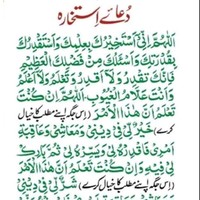 دُعائے اِستخارہ
اَللّٰهُمَّ اِنِّیْ اَسْتَخِیْرُكَ بِعِلْمِكَ وَاَسْتَقْدِرُكَ
بِقُدْرَتِكَ وَاَسْئَلُكَ مِنْ فَضْلِكَ الْعَظِیْمِ
فَاِنَّكَ تَقْدِرُ وَلَا اَقْدِرُ وَتَعْلَمُ وَلَا اَعْلَمُ
وَاَنْتَ عَلَّامُ الْغُیُوْبِ اَللّٰهُمَّ اِنْ كُنْتَ
تَعْلَمُ اَنَّ هٰذَا الْاَمْرَ (اس جگہ اپنے مطلب کا خیال
کرے) خَیْرٌ لِّیْ فِیْ دِیْنِیْ وَمَعَاشِیْ وَعَاقِبَةِ
اَمْرِیْ فَاقْدِرْهُ لِیْ وَیَسِّرْهُ لِیْ ثُمَّ بَارِكْ
لِیْ فِیْهِ وَاِنْ كُنْتَ تَعْلَمُ اَنَّ هٰذَا الْاَمْرَ
(اس جگہ اپنے مطلب کا خیال کرے) شَرٌّ لِّیْ فِیْ